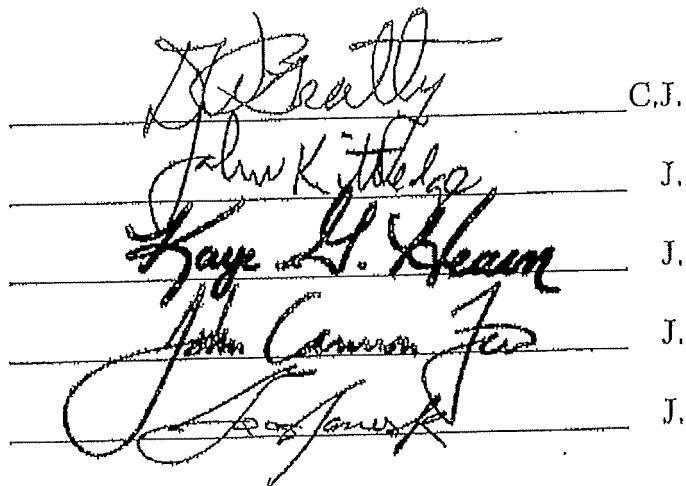 DWBeatty C.J.
John Kittredge J.
Kaye G. Hearn J.
John Cannon Few J.
James J.